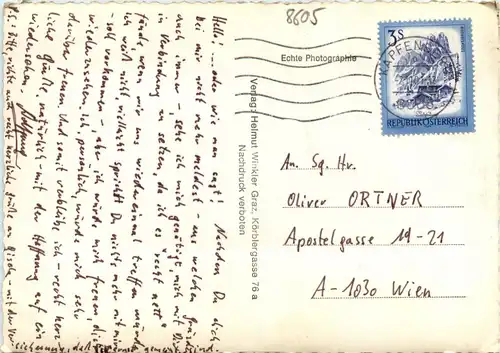 8605
3 S
KAPFENBERG
REPUBLIK ÖSTERREICH
Echte Photographie
Verlag: Helmut Winkler Graz, Körblergasse 76 a
Nachdruck verboten
An. Sg. Hr.
Oliver ORTNER
Apostelgasse 19-21
A-1030 Wien
Hallo! ... oder wie man sagt! Nachdem Du dich
bei mir nicht mehr meldest - aus welchen Gründen
auch immer -, sehe ich mich genötigt, mich mit Dir
in Verbindung zu setzen, da ich es "echt nett"
fände, wenn wir uns wieder einmal treffen würden.
Ich weiß nicht, vielleicht sprichst Du nicht mehr mit mir
soll vorkommen -, aber ich würde mich freuen, Dich
wiederzusehen. Ich, persönlich, würde mich sehr
darüber freuen. Und somit verbleibe ich - recht herz-
liche Grüße, natürlich - mit der Hoffnung auf ein
Wiedersehen,
P.S.: Bitte richte auch recht herzliche Grüße an
- mit der Ver-
sicherung, daß